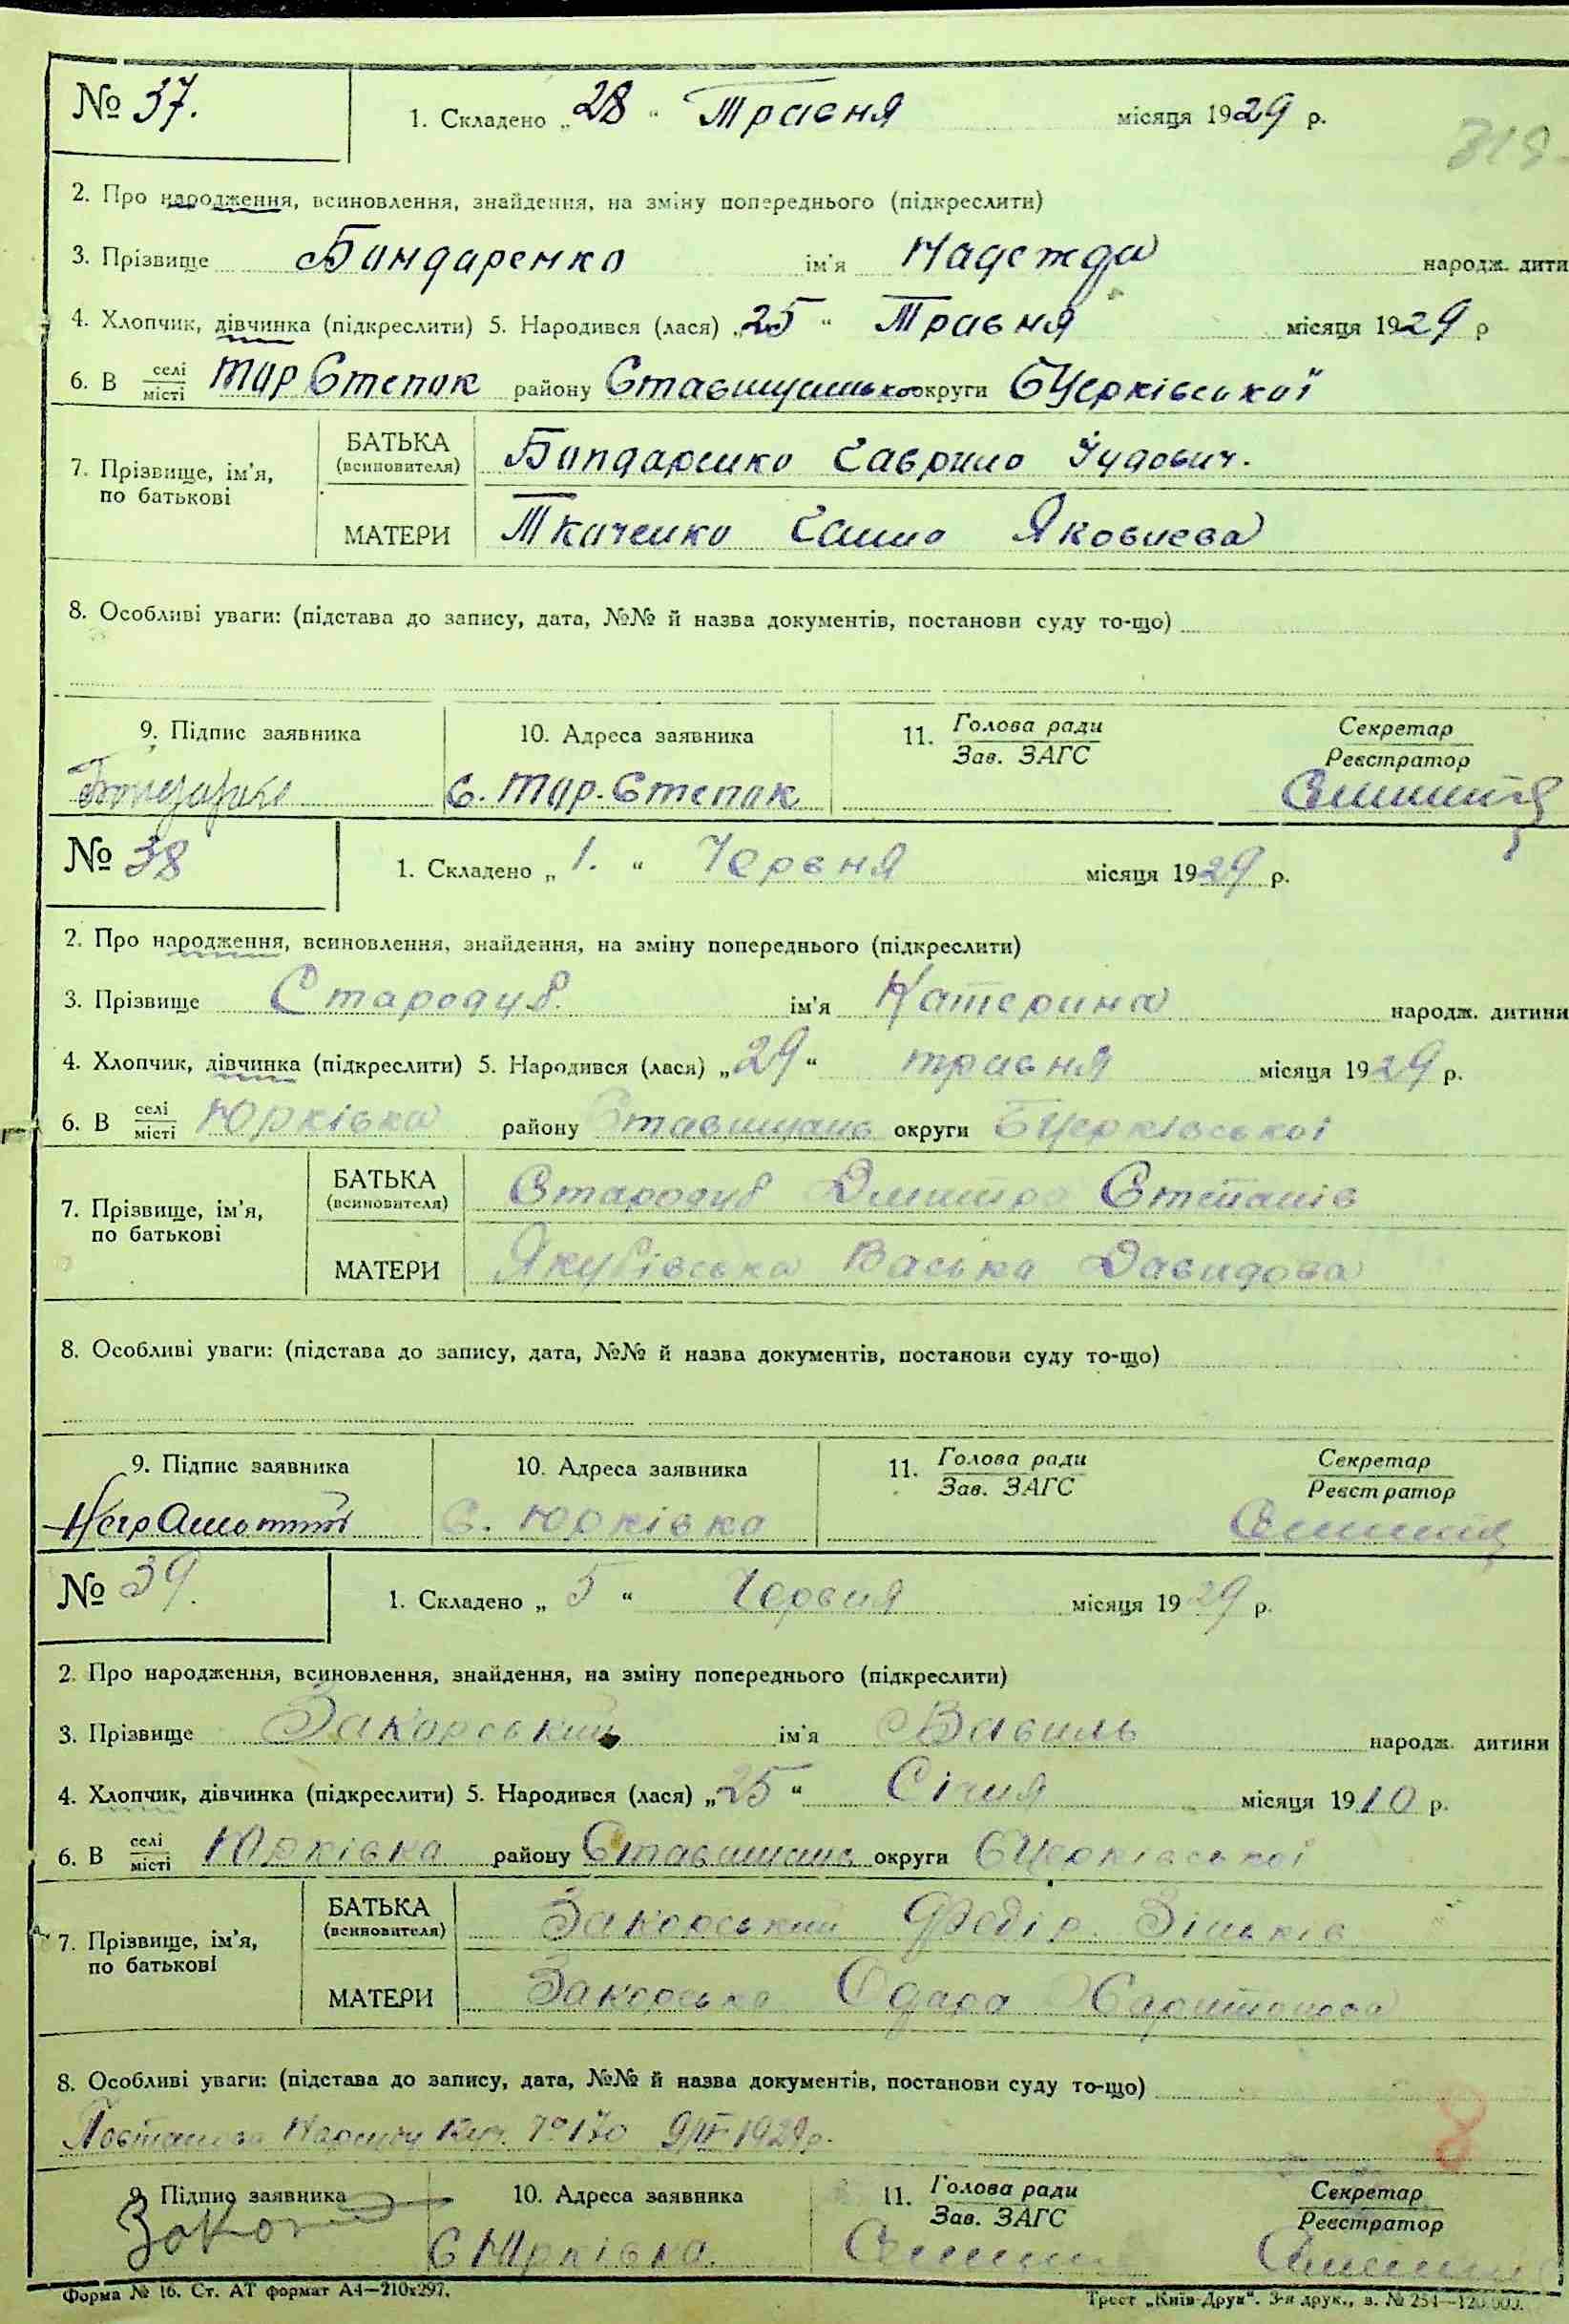 № 37. 1. Складено „28“ Травня місяця 1929 р.
319
2. Про народження, всиновлення, знайдення, на зміну попереднього (підкреслити)
3. Прізвище Бондаренко ім'я Надежда народж. дити
4. Хлопчик, дівчинка (підкреслити) 5. Народився (лася) „25“ Травня місяця 1929 р
6. В селі місті Тар Степок району Ставищанько округи БЦерківської
7. Прізвище, ім'я, по батькові БАТЬКА (всиновителя) Бондаренко Гаврило Юдович.
МАТЕРИ Ткаченко Ганна Яковлева
8. Особливі уваги: (підстава до запису, дата, №№ й назва документів, постанови суду то-що)
9. Підпис заявника 10. Адреса заявника 11. Голова ради Зав. ЗАГС Секретар Реєстратор
с. Тар. Степок
№ 38 1. Складено „1.“ Червня місяця 1929 р.
2. Про народження, всиновлення, знайдення, на зміну попереднього (підкреслити)
3. Прізвище Стародуб. ім'я Катерина народж. дитини
4. Хлопчик, дівчинка (підкреслити) 5. Народився (лася) „29“ травня місяця 1929 р.
6. В селі місті Юрківка району Ставищань округи БЦерківської
7. Прізвище, ім'я, по батькові БАТЬКА (всиновителя) Стародуб Дмитро Степанів
МАТЕРИ Якубівська Васька Давидова
8. Особливі уваги: (підстава до запису, дата, №№ й назва документів, постанови суду то-що)
9. Підпис заявника 10. Адреса заявника 11. Голова ради Зав. ЗАГС Секретар Реєстратор
с. Юрківка
№ 39. 1. Складено „5“ Червня місяця 1929 р.
2. Про народження, всиновлення, знайдення, на зміну попереднього (підкреслити)
3. Прізвище Закорський ім'я Василь народж. дитини
4. Хлопчик, дівчинка (підкреслити) 5. Народився (лася) „25“ Січня місяця 1910 р.
6. В селі місті Юрківка району Ставищань округи БЦерківської
7. Прізвище, ім'я, по батькові БАТЬКА (всиновителя) Закорський Федір Зіньків
МАТЕРИ Закорська Одара Харитонова
8. Особливі уваги: (підстава до запису, дата, №№ й назва документів, постанови суду то-що)
Постанова Нарсуду № 170 1929р.
9. Підпис заявника 10. Адреса заявника 11. Голова ради Зав. ЗАГС Секретар Реєстратор
с Юрківка.
Форма № 16. Ст. АТ формат А4—210х297. Трест „Київ-Друк“. 3-я друк., з. № 254—120.000.